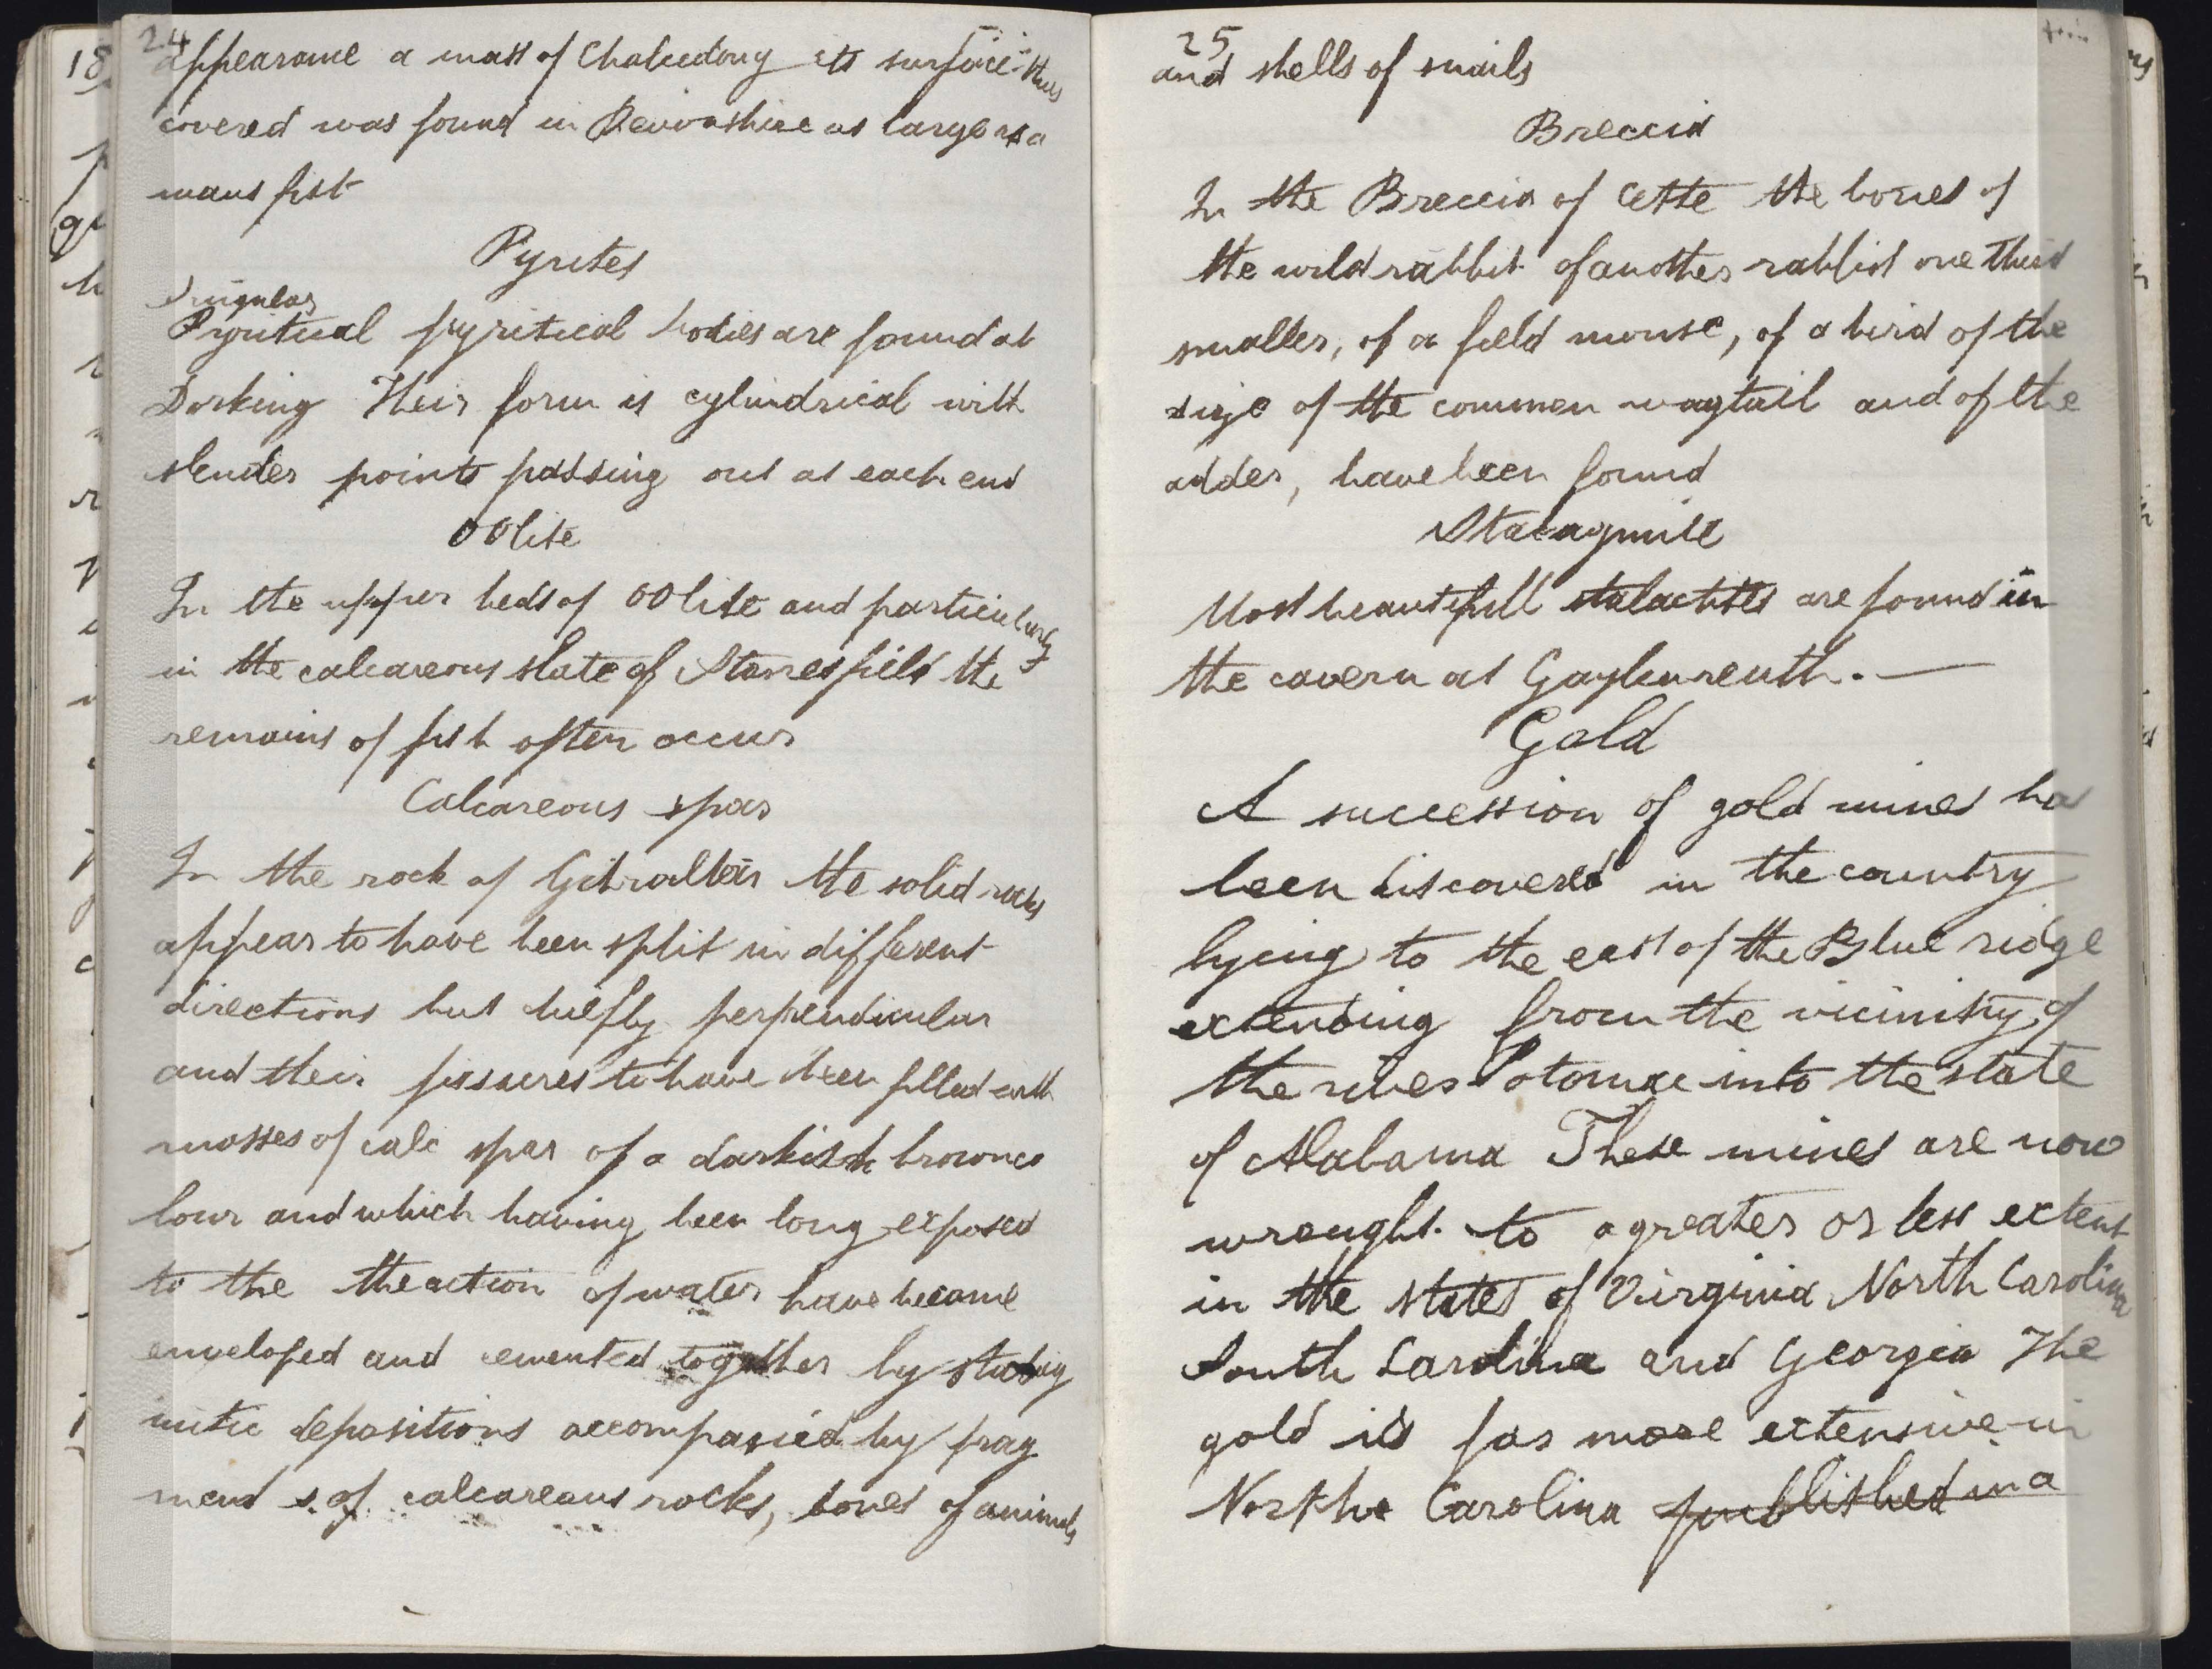 24
appearance a mass of Chalcedony its surface thus
covered was found in Devonshire as large as a
mans fist
Pyrites
Singular
Pyritical pyritical bodies are found at
Dorking Their form is cylindrical with
slender points passing out at each end
OOlite
In the upper beds of OOlite and particularly
in the calcareous slate of Stonesfield the
remains of fish often occur
Calcareous spar
In the rock of Gibraltar the solid rocks
appear to have been split in different
directions but chiefly perpendicular
and their fissures to have been filled with
masses of calc spar of a darkish brown co
lour and which having been long exposed
to the the action of water have become
enveloped and cemented together by stalag
mitic depositions accompanied by frag
ment s. of calcareous rocks, bones of animals
25
and shells of snails
Breccia
In the Breccia of Cette the bones of
the wild rabbit of another rabbit one third
smaller, of a field mouse, of a bird of the
size of the common wagtail and of the
adder, have been found
Stalagmite
Most beautifull stalactites are found in
the cavern at Gaylenreuth. —
Gold
A succession of gold mines has
been discovered in the country
lying to the east of the Blue ridge
extending from the vicinity of
the river Potomac into the state
of Alabama These mines are now
wrought to a greater or less extent
in the states of Virginia North Carolina
South Carolina and Georgia The
gold is far more extensive in
Northe Carolina published in a